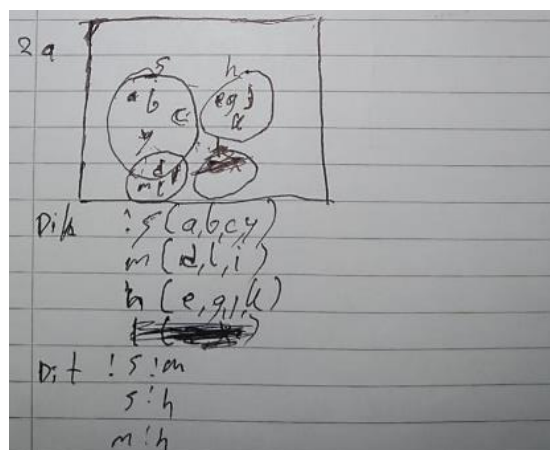 2 a
s h
a b c y
e g j k
d
m l i
Dik : s (a, b, c, y)
m (d, l, i)
h (e, g, j, k)
Dit : s : m
s : h
m : h